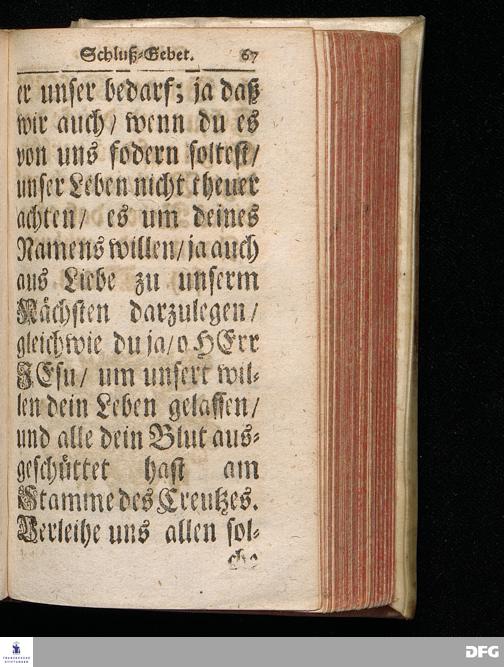 Schluß-Gebet. 67
er unser bedarf; ja daß
wir auch / wenn du es
von uns fodern soltest /
unser Leben nicht theuer
achten / es um deines
Namens willen / ja auch
aus Liebe zu unserm
Nächsten darzulegen /
gleichwie du ja / o HErr
JEsu / um unsert wil-
len dein Leben gelassen /
und alle dein Blut aus-
geschüttet hast am
Stamme des Creutzes.
Verleihe uns allen sol-
che
FRANCKESCHE
STIFTUNGEN
DFG